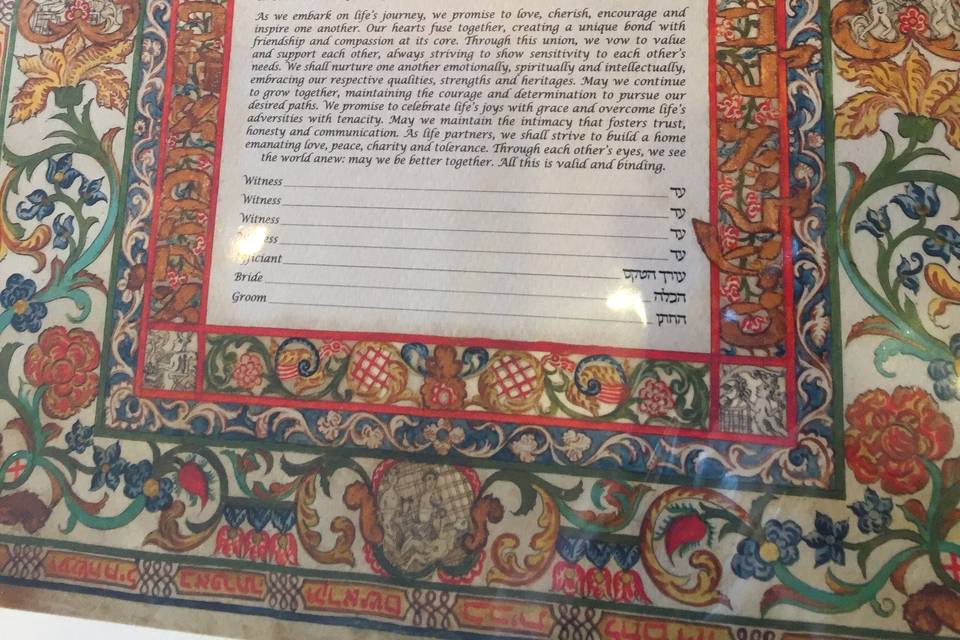 As we embark on life's journey, we promise to love, cherish, encourage and
inspire one another. Our hearts fuse together, creating a unique bond with
friendship and compassion at its core. Through this union, we vow to value
and support each other, always striving to show sensitivity to each other's
needs. We shall nurture one another emotionally, spiritually and intellectually,
embracing our respective qualities, strengths and heritages. May we continue
to grow together, maintaining the courage and determination to pursue our
desired paths. We promise to celebrate life's joys with grace and overcome life's
adversities with tenacity. May we maintain the intimacy that fosters trust,
honesty and communication. As life partners, we shall strive to build a home
emanating love, peace, charity and tolerance. Through each other's eyes, we see
the world anew: may we be better together. All this is valid and binding.
Witness עד
Witness עד
Witness עד
עד
עורך הטקס
Bride הכלה
Groom החתן